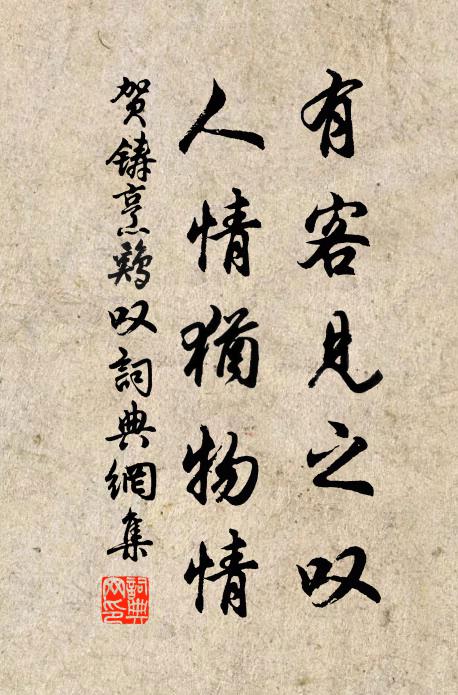 有客見之叹
人情猶物情
贺鑄烹鷄叹詞典網集
詞典網印